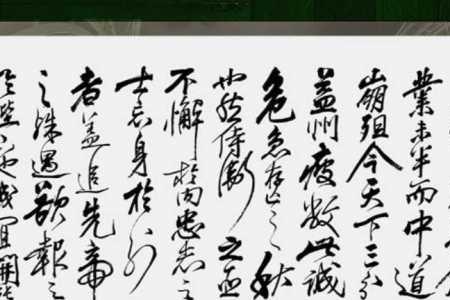 業未半而中道
崩殂今天下三分
益州疲敝此誠
危急存亡之秋
也然侍衛之臣
不懈於内忠志之
士忘身於外
者盖追先帝
之殊遇欲報之
於陛下也誠宜開張